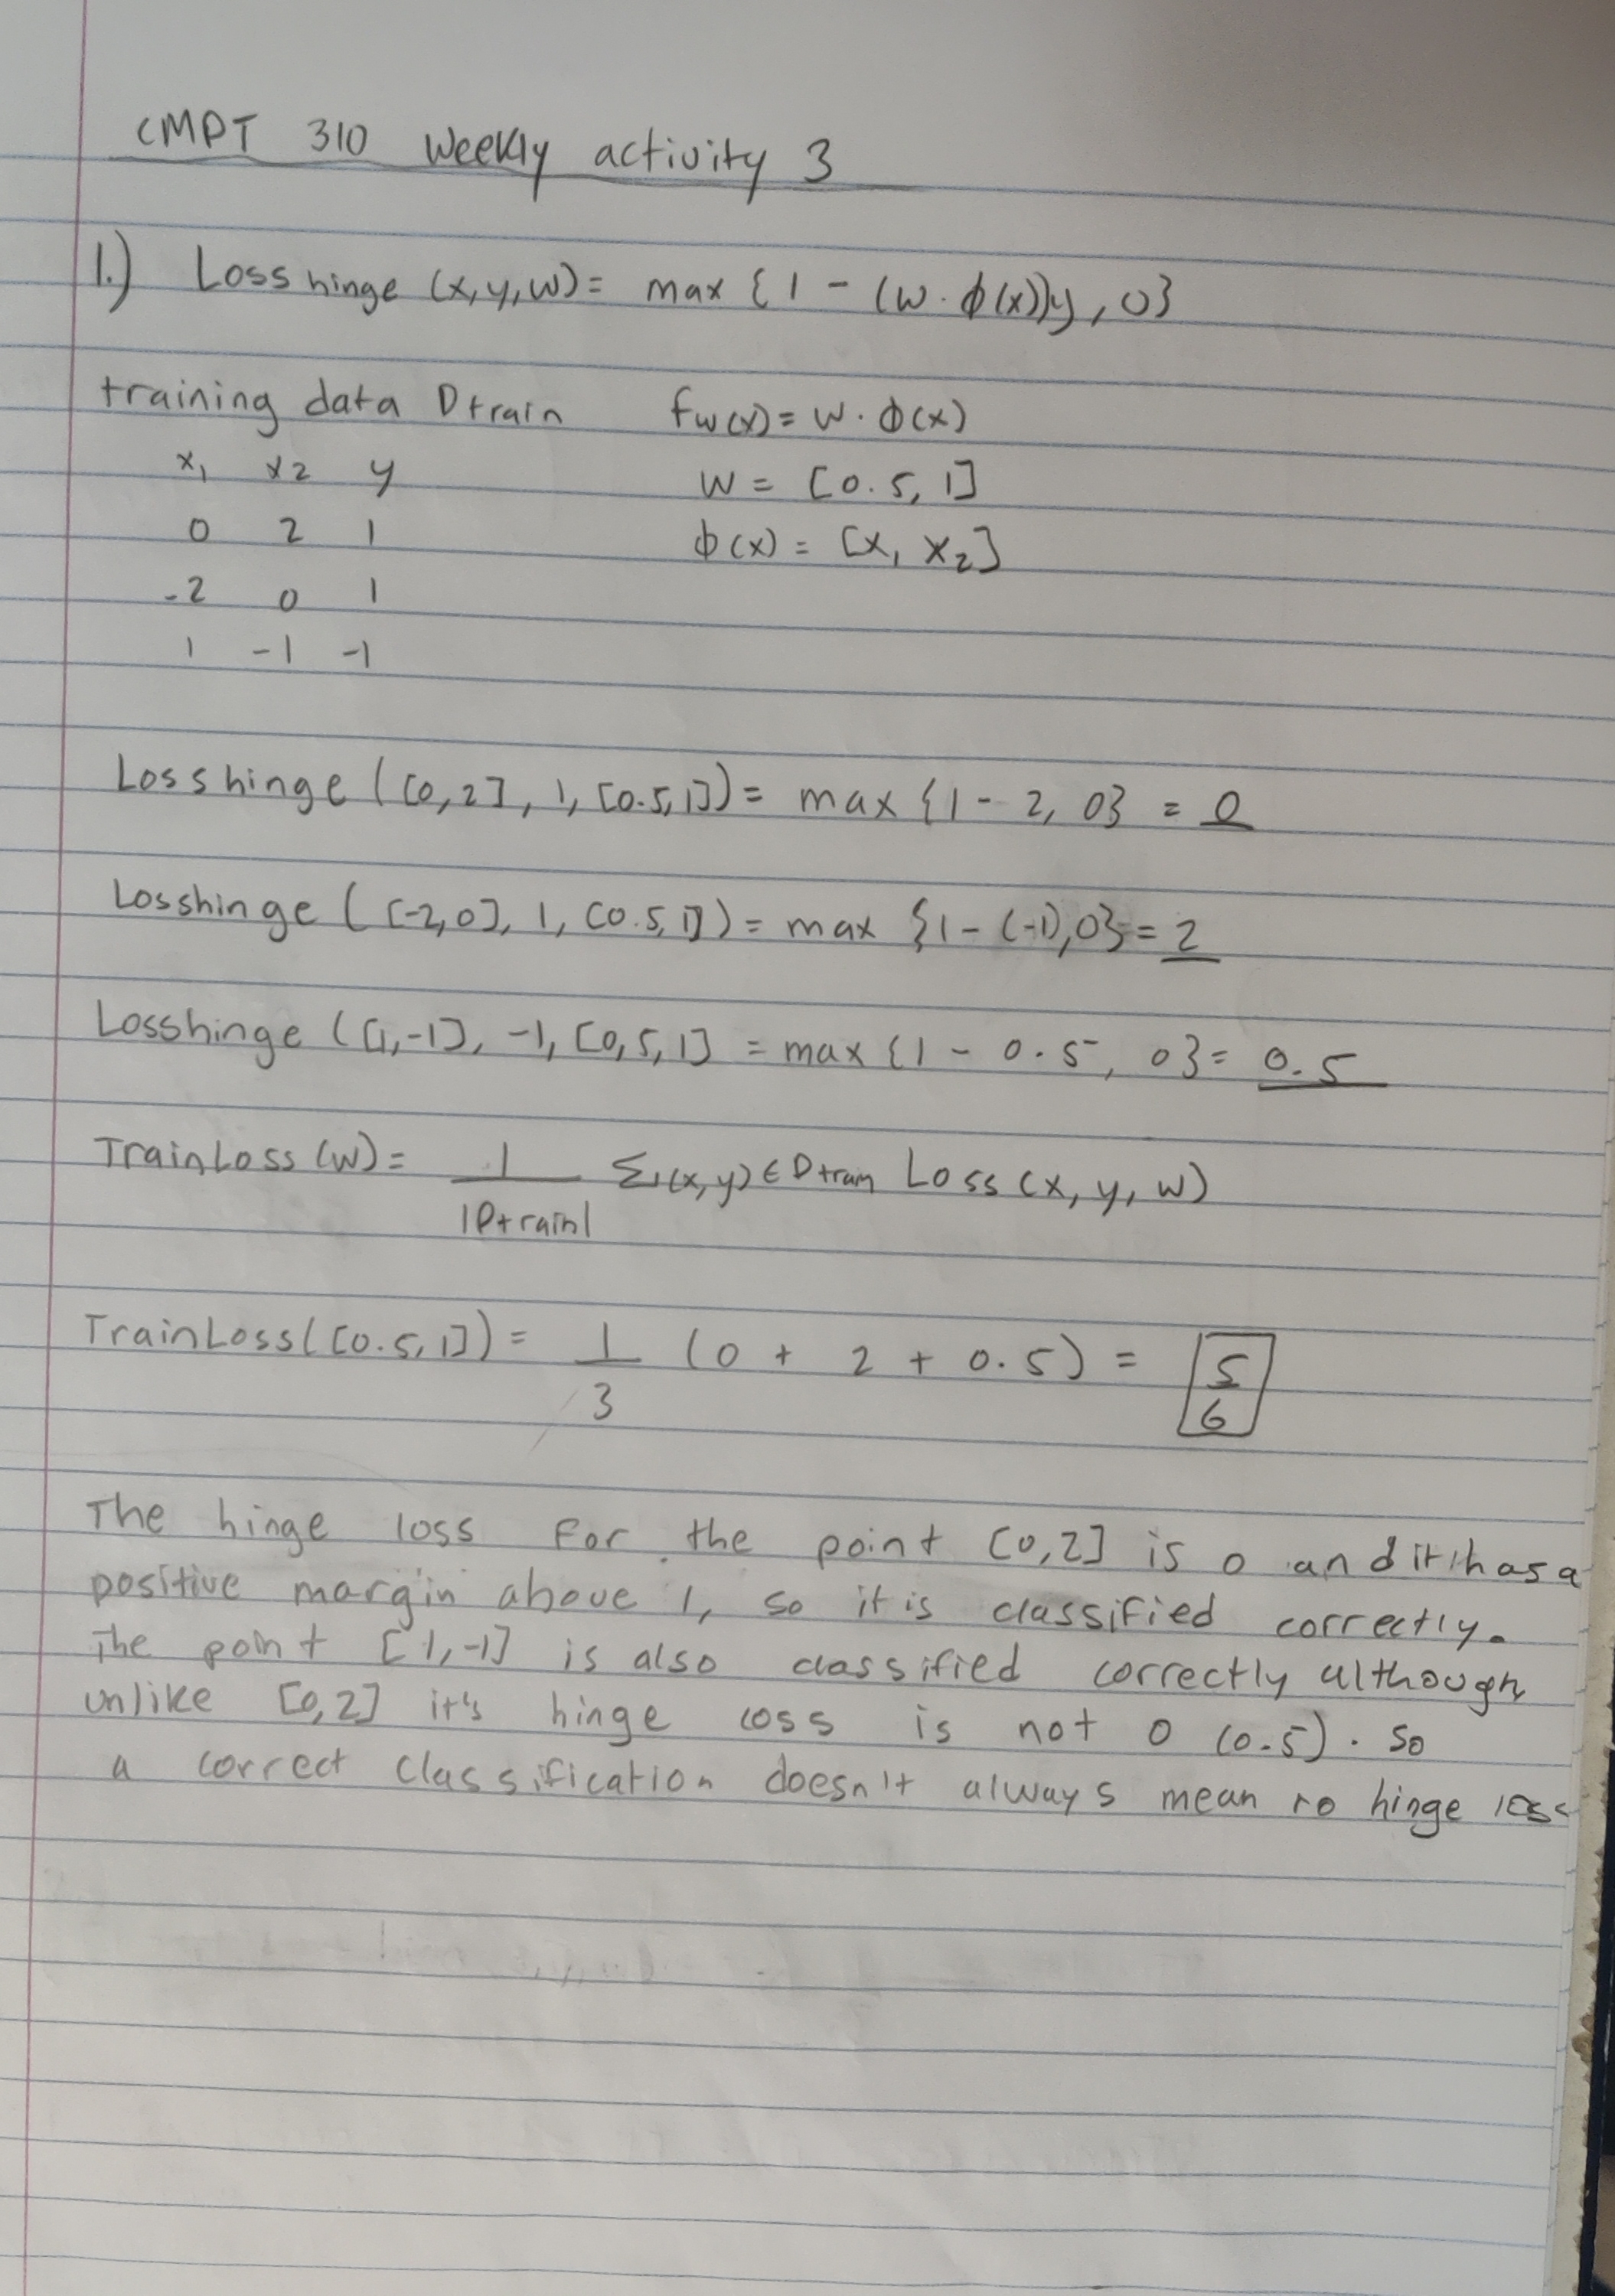 CMPT 310 Weekly activity 3
1.) Loss hinge (x,y,w) = max {1 - (w · φ(x))y, 0}
training data Dtrain fw(x) = w · φ(x)
x₁ x2 y w = [0.5, 1]
0 2 1 φ(x) = [x₁ x₂]
-2 0 1
1 -1 -1
Loss hinge ([0,2], 1, [0.5,1]) = max {1 - 2, 0} = 0
Losshinge ([-2,0], 1, [0.5,1]) = max {1 - (-1),0} = 2
Losshinge ([1,-1], -1, [0,5,1] = max {1 - 0.5, 0} = 0.5
TrainLoss (w) = 1/|Dtrain| Σ(x,y)∈Dtrain Loss (x, y, w)
TrainLoss([0.5,1]) = 1/3 (0 + 2 + 0.5) = 5/6
The hinge loss for the point [0,2] is 0 and it has a
positive margin above 1, so it is classified correctly.
The point [1,-1] is also classified correctly although
unlike [0,2] it's hinge loss is not 0 (0.5). So
a correct classification doesn't always mean no hinge loss